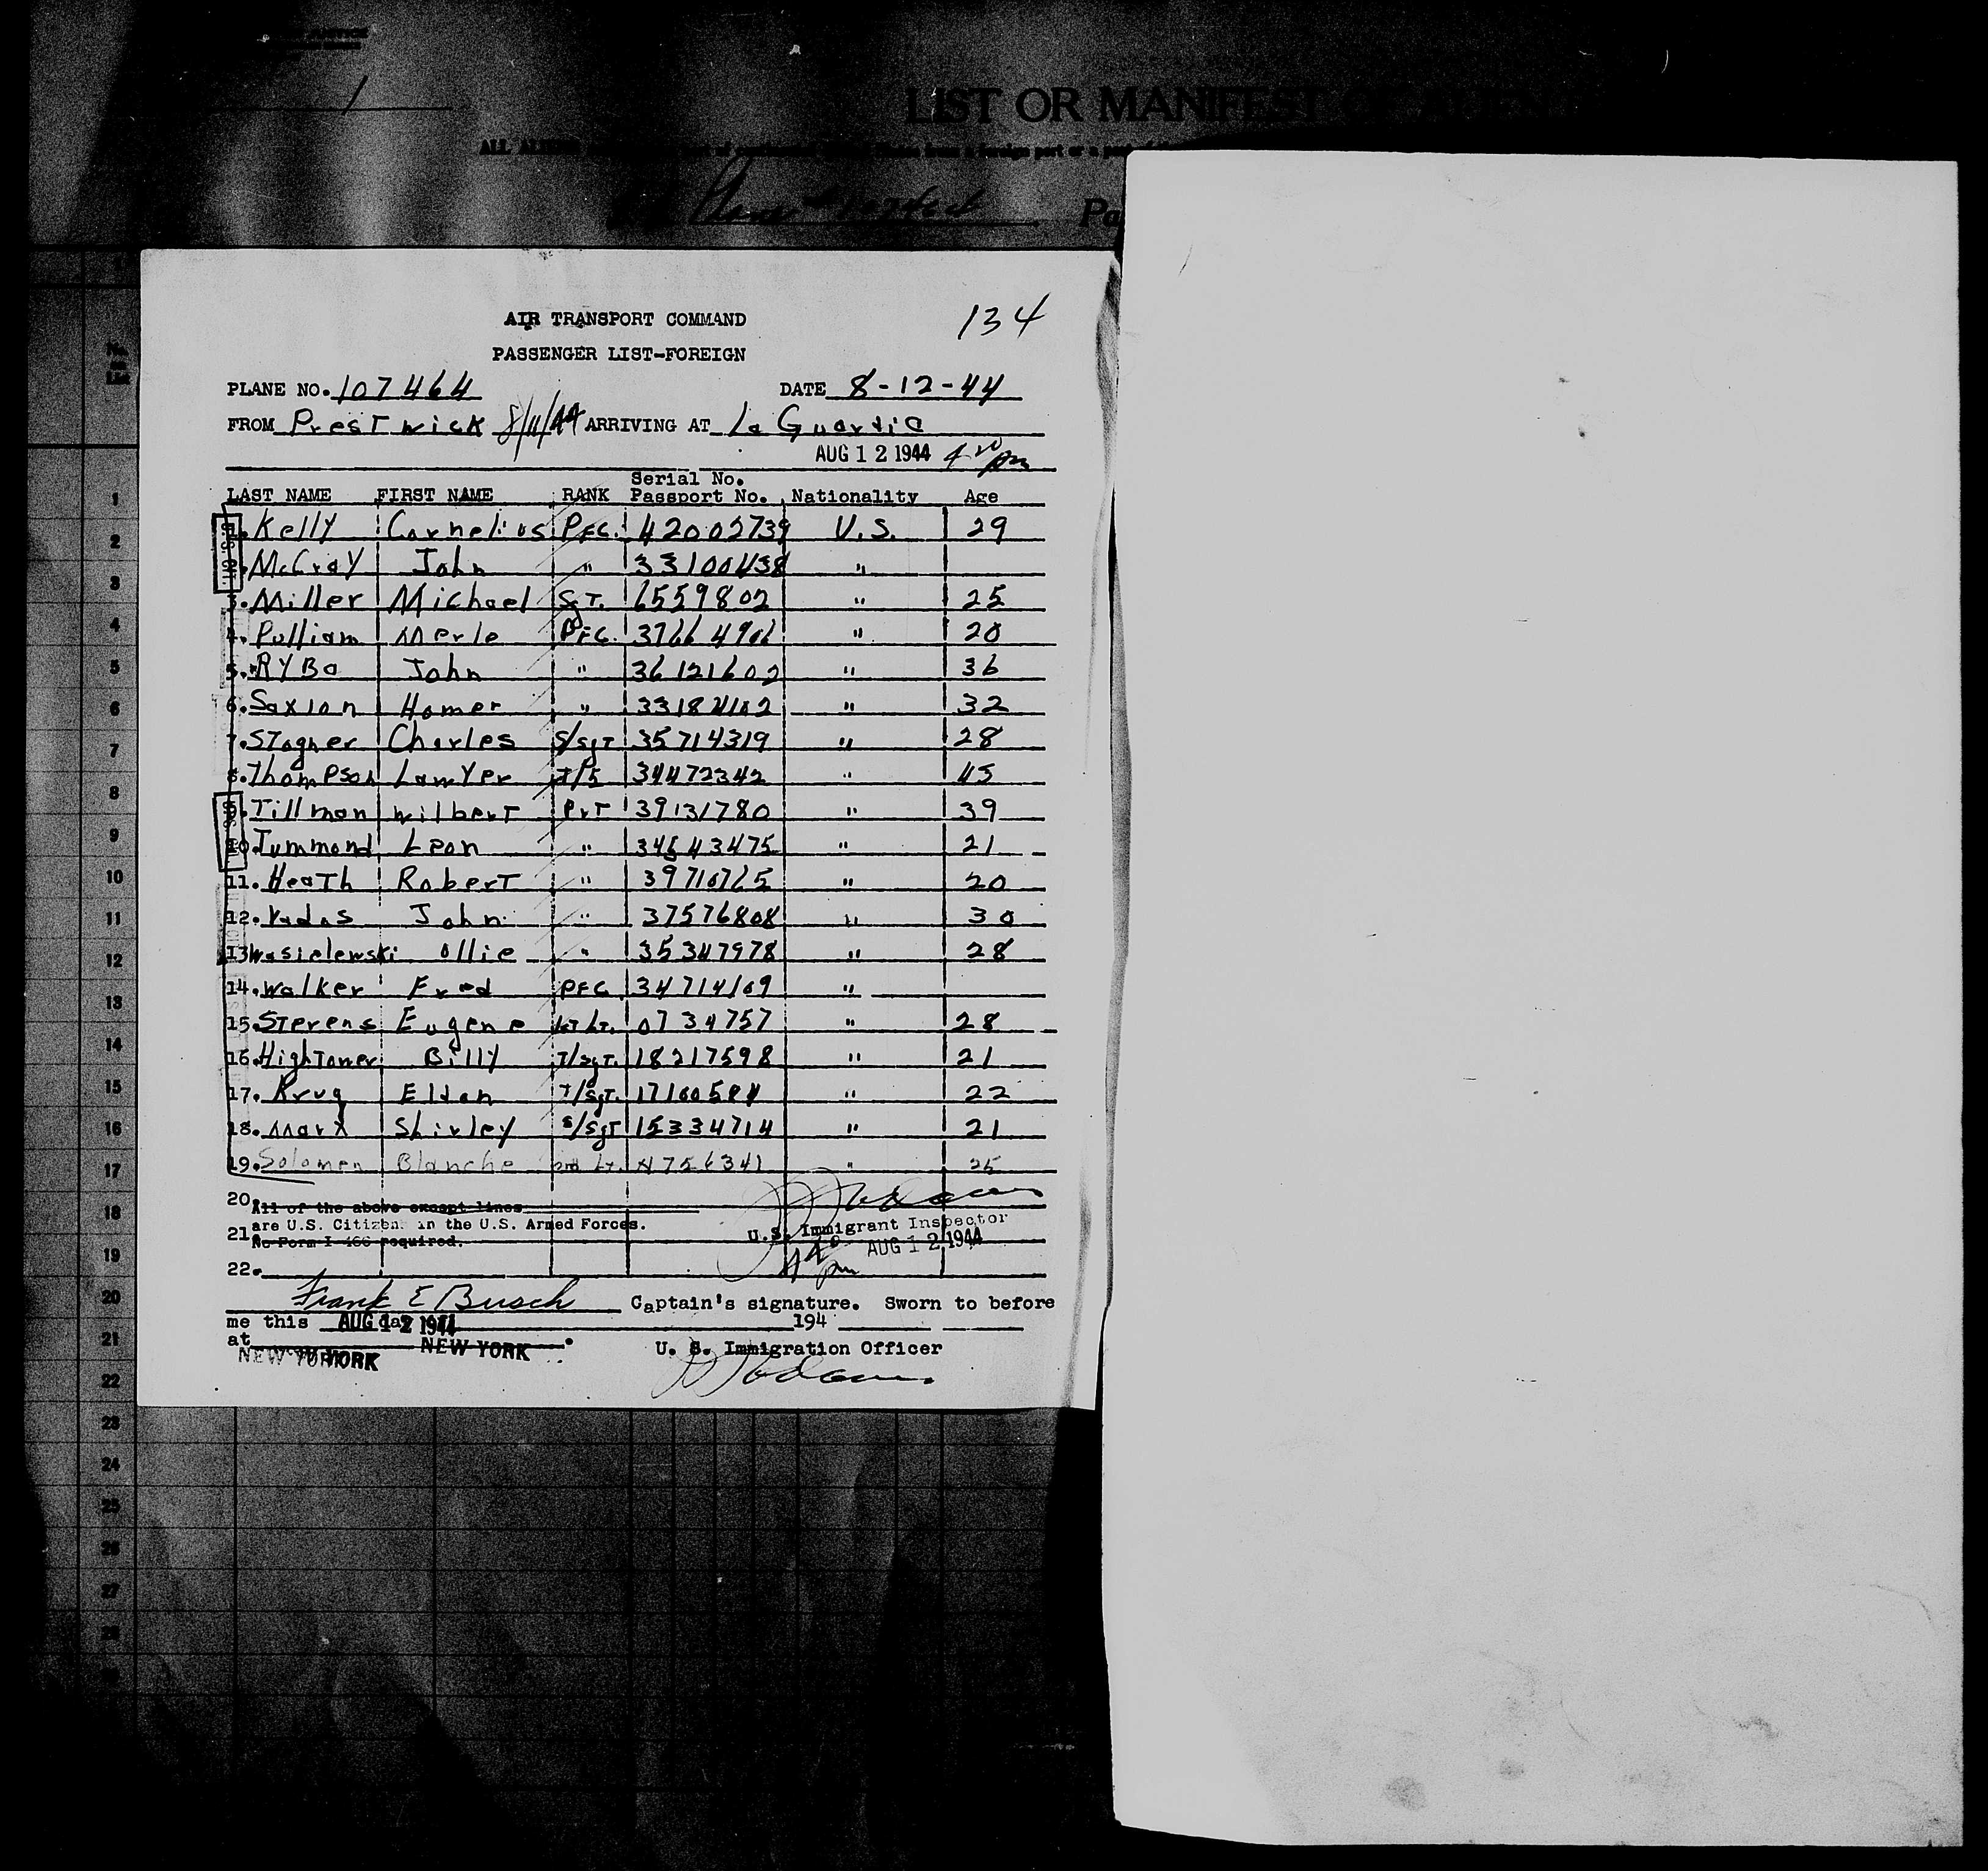 LIST OR MANIFEST OF ALIEN
ALL ALIENS
134
AIR TRANSPORT COMMAND
PASSENGER LIST-FOREIGN
PLANE NO. 107464 DATE 8-12-44
FROM Prestwick 8/11/44 ARRIVING AT La Guardia
AUG 12 1944 4 20 pm
LAST NAME FIRST NAME RANK Serial No. Passport No. Nationality Age
1. Kelly Cornelius PFC. 42002739 U.S. 29
2. McCray John " 33100438 "
3. Miller Michael SGT. 6559802 " 25
4. Pulliam Merle PFC. 37664906 " 20
5. Ryba John " 36121602 " 36
6. Saxion Homer " 33182102 " 32
7. Stagner Charles S/SgT 35714319 " 28
8. Thompson Lawyer T/5 34472342 " 45
9. Tillman Wilbert PvT 39131780 " 39
10. Tummond Leon " 34543475 " 21
11. Heath Robert " 39710765 " 20
12. Vadas John " 37576808 " 30
13 Wasielewski Ollie " 35347978 " 28
14. Walker Fred PFC 34714109 "
15. Stevens Eugene 1st Lt. 0734757 " 28
16. Hightower Billy T/SgT. 18217598 " 21
17. Krug Eldon T/SgT. " 22
18. Marx Shirley S/SgT 15334714 " 21
19. Solomen Blanche 2nd Lt. N756341 " 25
20. All of the above except lines
are U.S. Citizens in the U.S. Armed Forces.
21. No Form I-466 required.
U.S. Immigrant Inspector
AUG 12 1944
22.
Frank E Busch Captain's signature. Sworn to before
me this AUG 12 1944 day 194
at NEW YORK NEW YORK
U. S. Immigration Officer